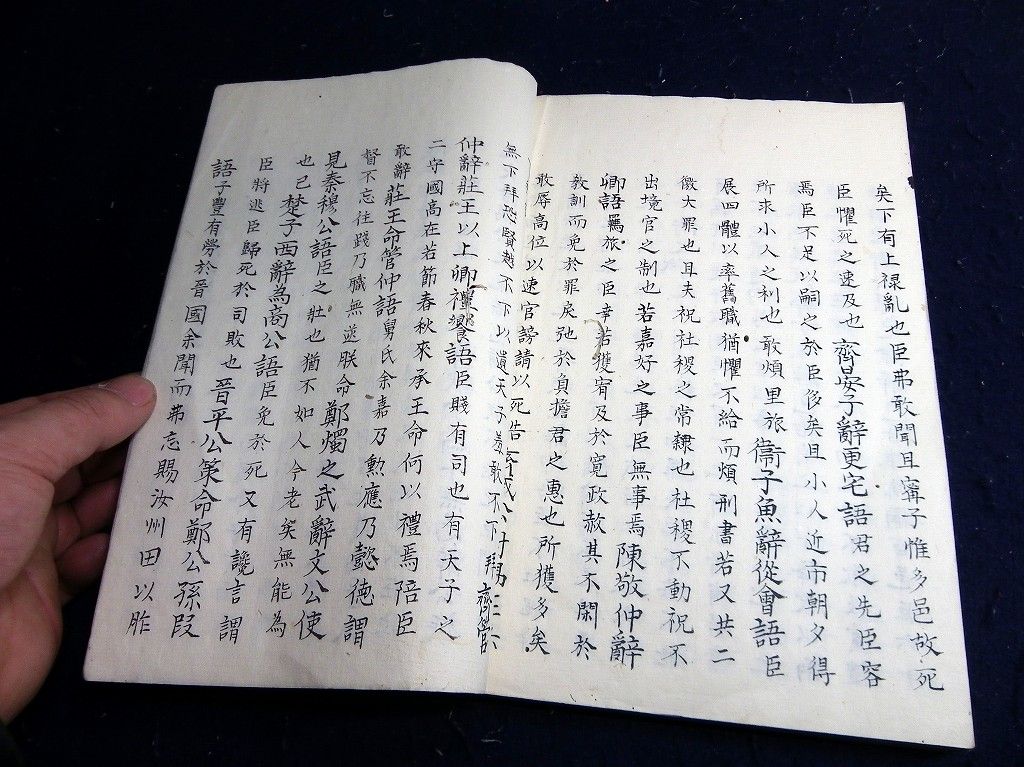 矣下有上禄亂也臣弗敢聞且甯子惟多邑故死
臣懼死之速及也齊晏子辭更宅語君之先臣容
焉臣不足以嗣之於臣侈矣且小人近市朝夕得
所求小人之利也敢煩里旅衞子魚辭從會語臣
展四體以率舊職猶懼不給而煩刑書若又共二
徼大罪也且夫祝社稷之常隸也社稷不動祝不
出境官之制也若嘉好之事臣無事焉陳敬仲辭
卿語羈旅之臣幸若獲宥及於寛政赦其不閑於
敎訓而免於罪戾弛於負擔君之惠也所獲多矣
敢辱高位以速官謗請以死告
無下拜恐隕越于下以遺天子羞敢不下拜齊管
仲辭莊王以上卿禮饗語臣賤有司也有天子之
二守國高在若節春秋來承王命何以禮焉陪臣
敢辭莊王命管仲語舅氏余嘉乃勲應乃懿徳謂
督不忘往踐乃職無逆朕命鄭燭之武辭文公使
見秦穆公語臣之壯也猶不如人今老矣無能為
也已楚子西辭為商公語臣免於死又有讒言謂
臣將逃臣歸死於司敗也晉平公策命鄭公孫段
語子豐有勞於晉國余聞而弗忘賜汝州田以胙